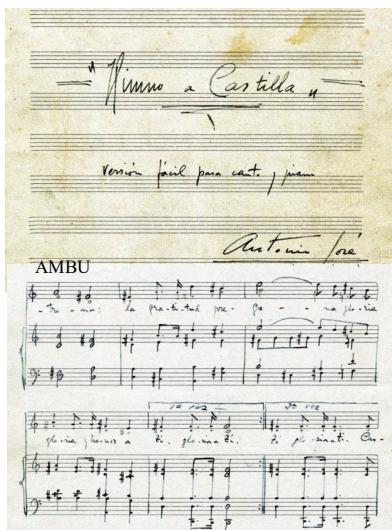 "Himno a Castilla"
versión fácil para canto y piano
Antonio José
AMBU
-tre-na; la gratitud pre-go-na gloria
1a vez 2a vez
gloria y honor a ti, gloria a ti. ti gloria a ti. Cas-